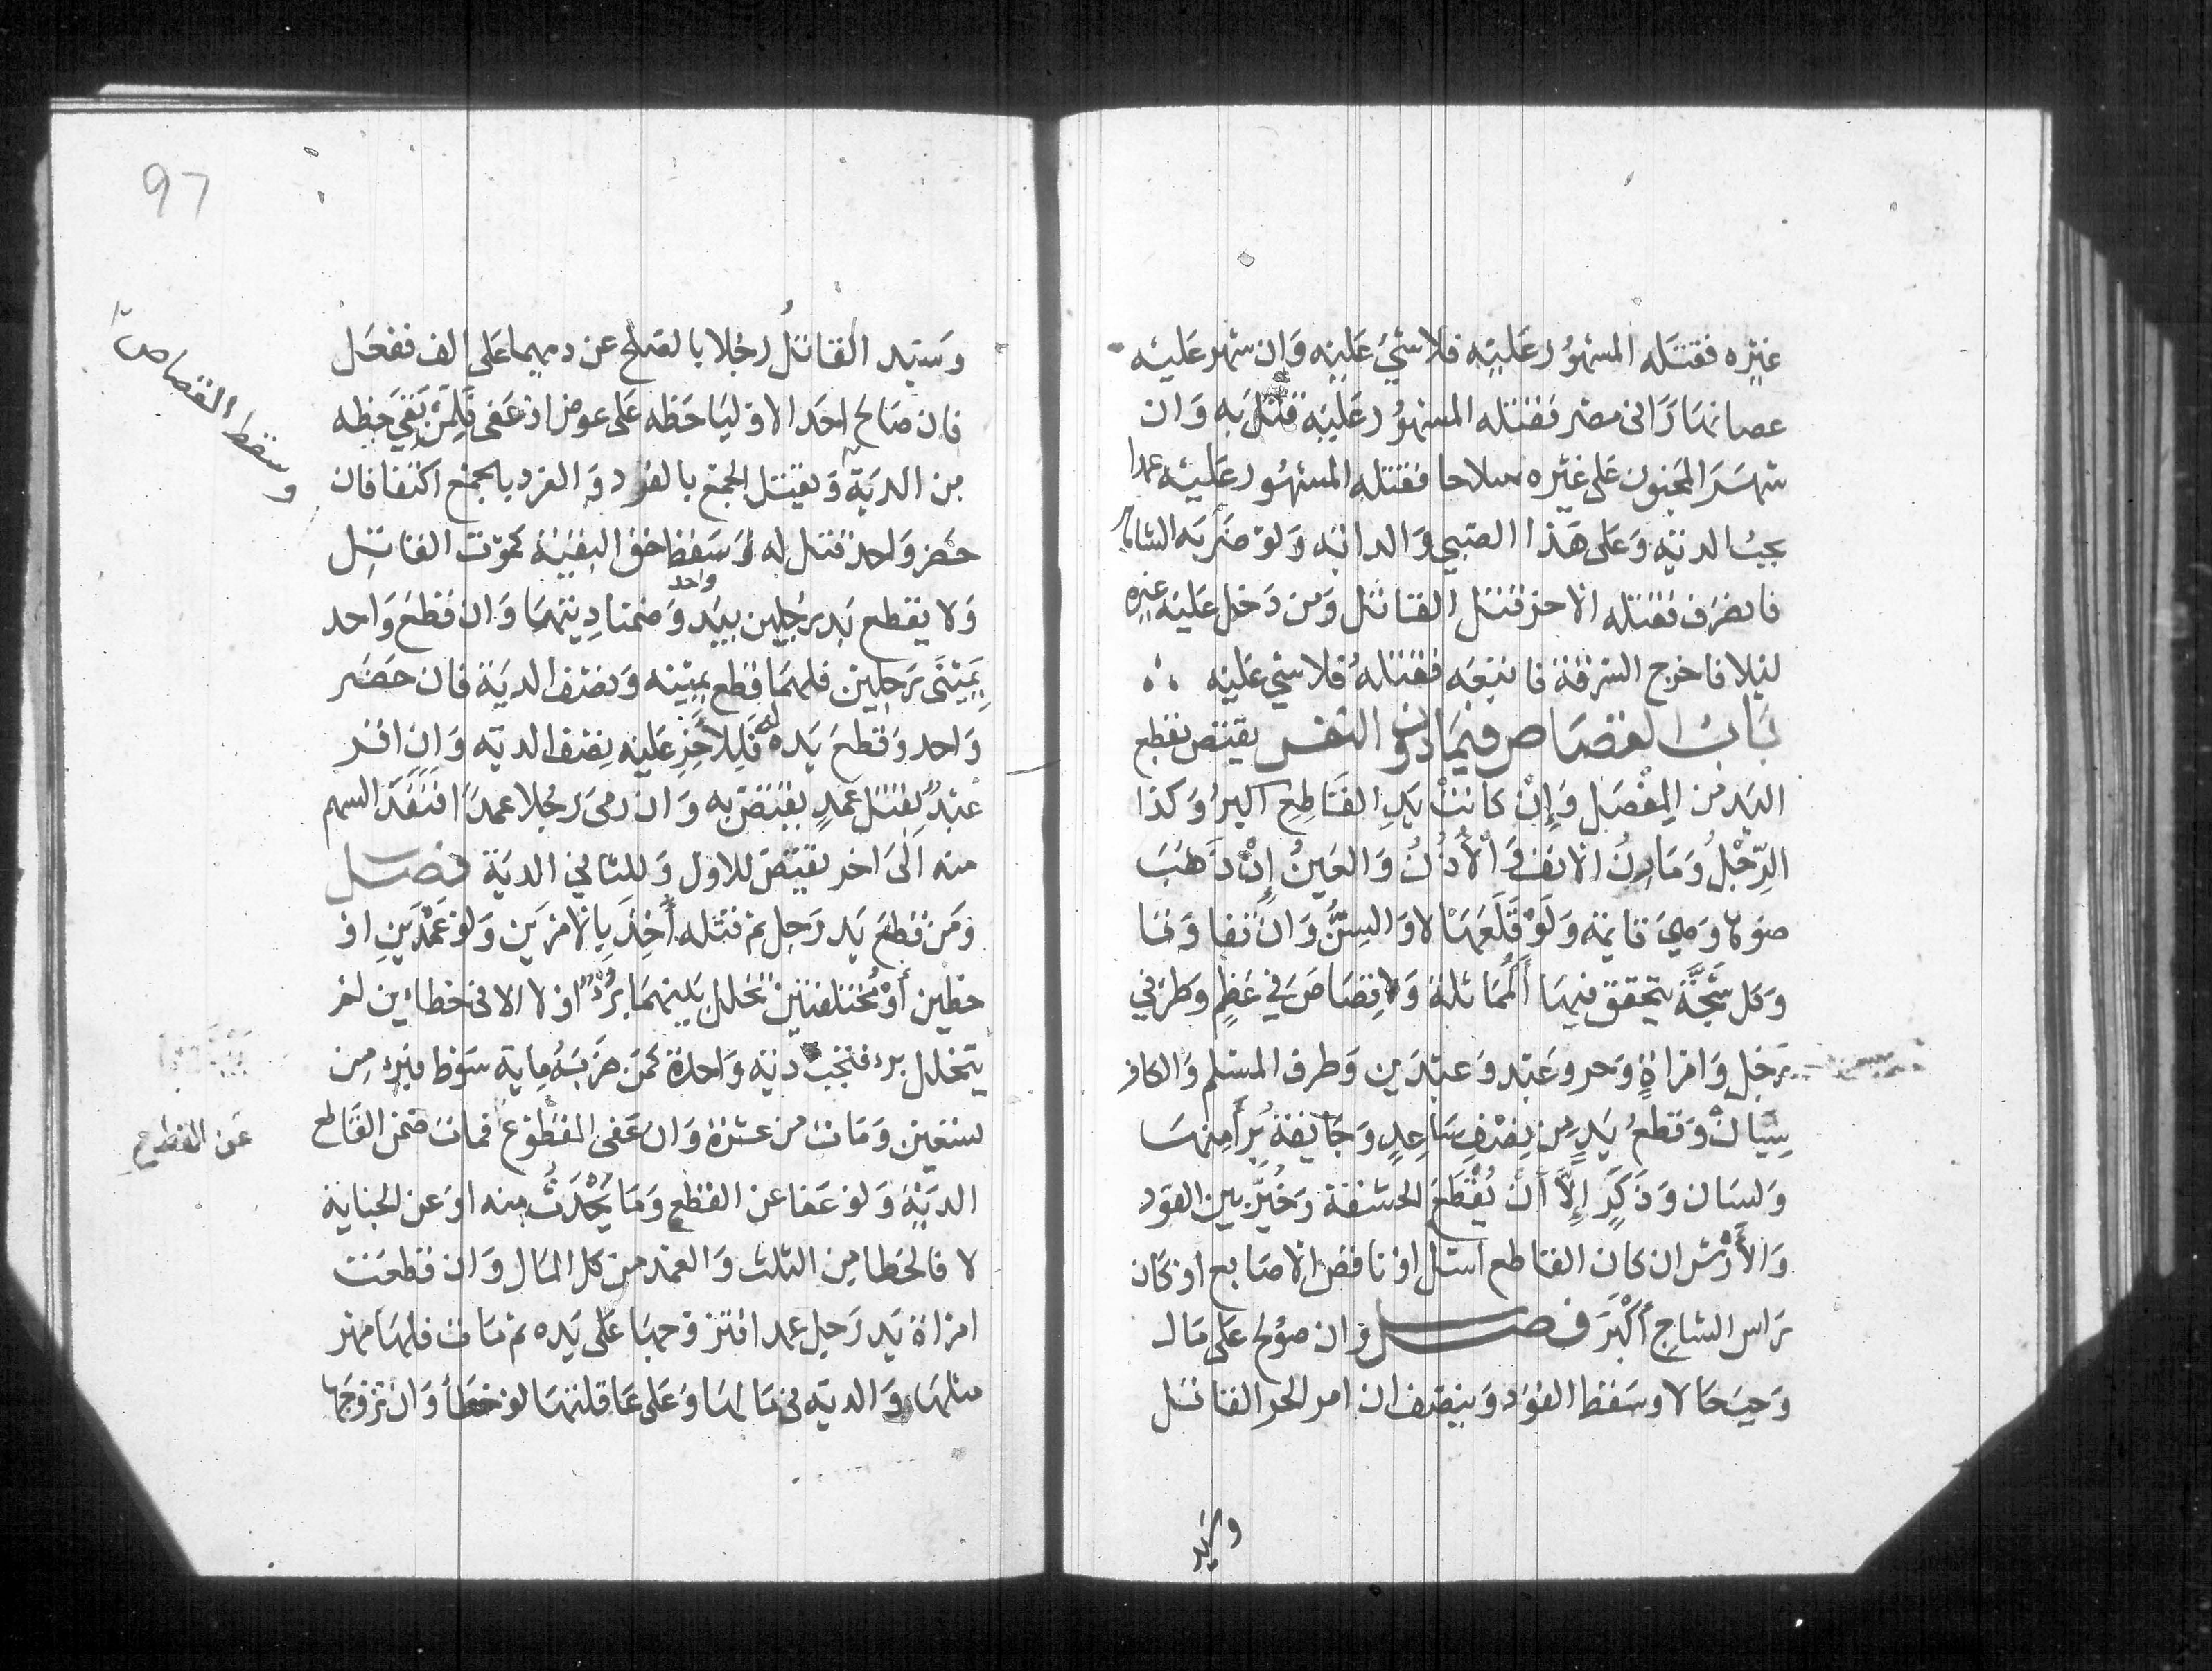 غيره فقتله المشهور عليه فلا شي عليه وان شهر عليه
عصا نهارا فى مصر فقتله المشهور عليه قتل به وان
شهر المجنون على غيره سلاحا فقتله المشهور عليه عمدا
يجب الدية وعلى هذا الصبي والدابة ولو ضربه الشاهر
فانصرف فقتله الاخر قتل القاتل ومن دخل عليه غيره
ليلا فاخرج السرقة فاتبعه فقتله فلا شي عليه
باب القصاص فيما دون النفس يقتص بقطع
اليد من المفصل وَإِنْ كانت يد القاطع اكبر وكذا
الرّجْلُ ومارن الانف والأذُنُ والعينُ إِنْ ذهب
ضوها وهي قايمة وَلَوْ قلعها لا والسِنُّ وان تفاوتا
وكل شَجَّة يتحقق فيها المُماثلة ولا قصاص في عظم وطرفي
رجل وامراة وحر وعبد وعبدين وطرف المسلم والكافر
سيان وقطعُ يدٍ من نِصْفِ ساعدٍ وجايفة برأ منها
ولسان وذكَرٍ إِلَّا أَنْ يُقْطَعَ الحشفة وخُيِّر بين القود
والأَرْش ان كان القاطع اشل او ناقص الاصابع او كان
راس الشاج أَكْبَرَ فصل وان صولح على مال
وجب حالا وسقط القود وينصف ان امر الحر القاتل
وسيد
97
وسيد القاتلُ رجلا بالصلح عن دمهما على الف ففعل
فان صالح احد الاوليا حظه على عوض او عفى فلِمَنْ بقي حظه
وسقط القصاص
من الدية ويقتل الجمع بالفرد والفرد بالجمع اكتفا فان
حضر واحد قتل له وسقط حق البقية كموت القاتل
ولا يقطع يد رجلين بيد واحد وضمنا ديتها وان قطع واحد
يمينَى رجلين فلهما قطع يمينه ونصف الدية فان حضر
واحد وقطع يده له فللاخر عليه نصف الدية وان اقر
عبدٌ بقتل عمدٍ يقتص به وان رمى رجلا عمدا فنفذ السهم
منه الى اخر يقتص للاول وللثاني الدية فصل
ومن قطع يد رجل ثم قتله أُخِذَ بالامرين ولو عمدين او
خطين أَوْ مُختلفتين تخلل بينهما بُرْءٌ او لا الا فى خطاءين لم
يتخلل برء فتجب دية واحدة كمن ضربه ماية سوط فبرء من
تسعين وماتت من عشرة وان عفى المقطوع فمات ضمن القاطع
عن القطع
الدية ولو عفا عن القطع وما يَحْدُثُ منه او عن الجناية
لا فالخطا من الثلث والعمد من كل المال وان قطعت
امراة يد رجل عمدا فتزوجها على يده ثم مات فلها مهر
مثلها والدية فى مالها وعلى عاقلتها لو خطأ وان تزوجها